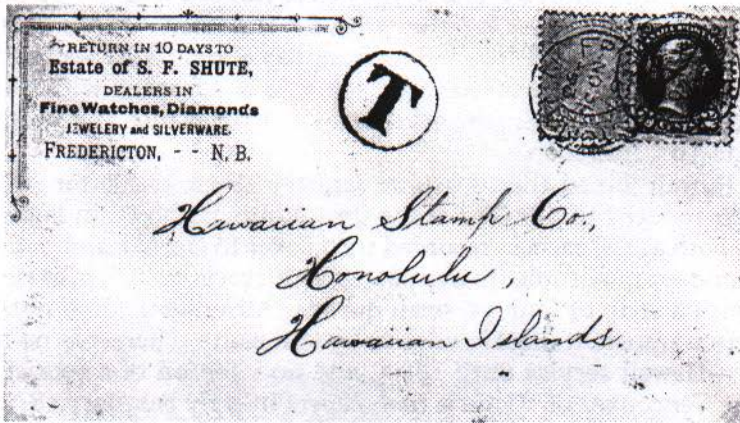 RETURN IN 10 DAYS TO
Estate of S. F. SHUTE,
DEALERS IN
Fine Watches, Diamonds
JEWELERY and SILVERWARE.
FREDERICTON, - - N. B.
T
Hawaiian Stamp Co.,
Honolulu,
Hawaiian Islands.